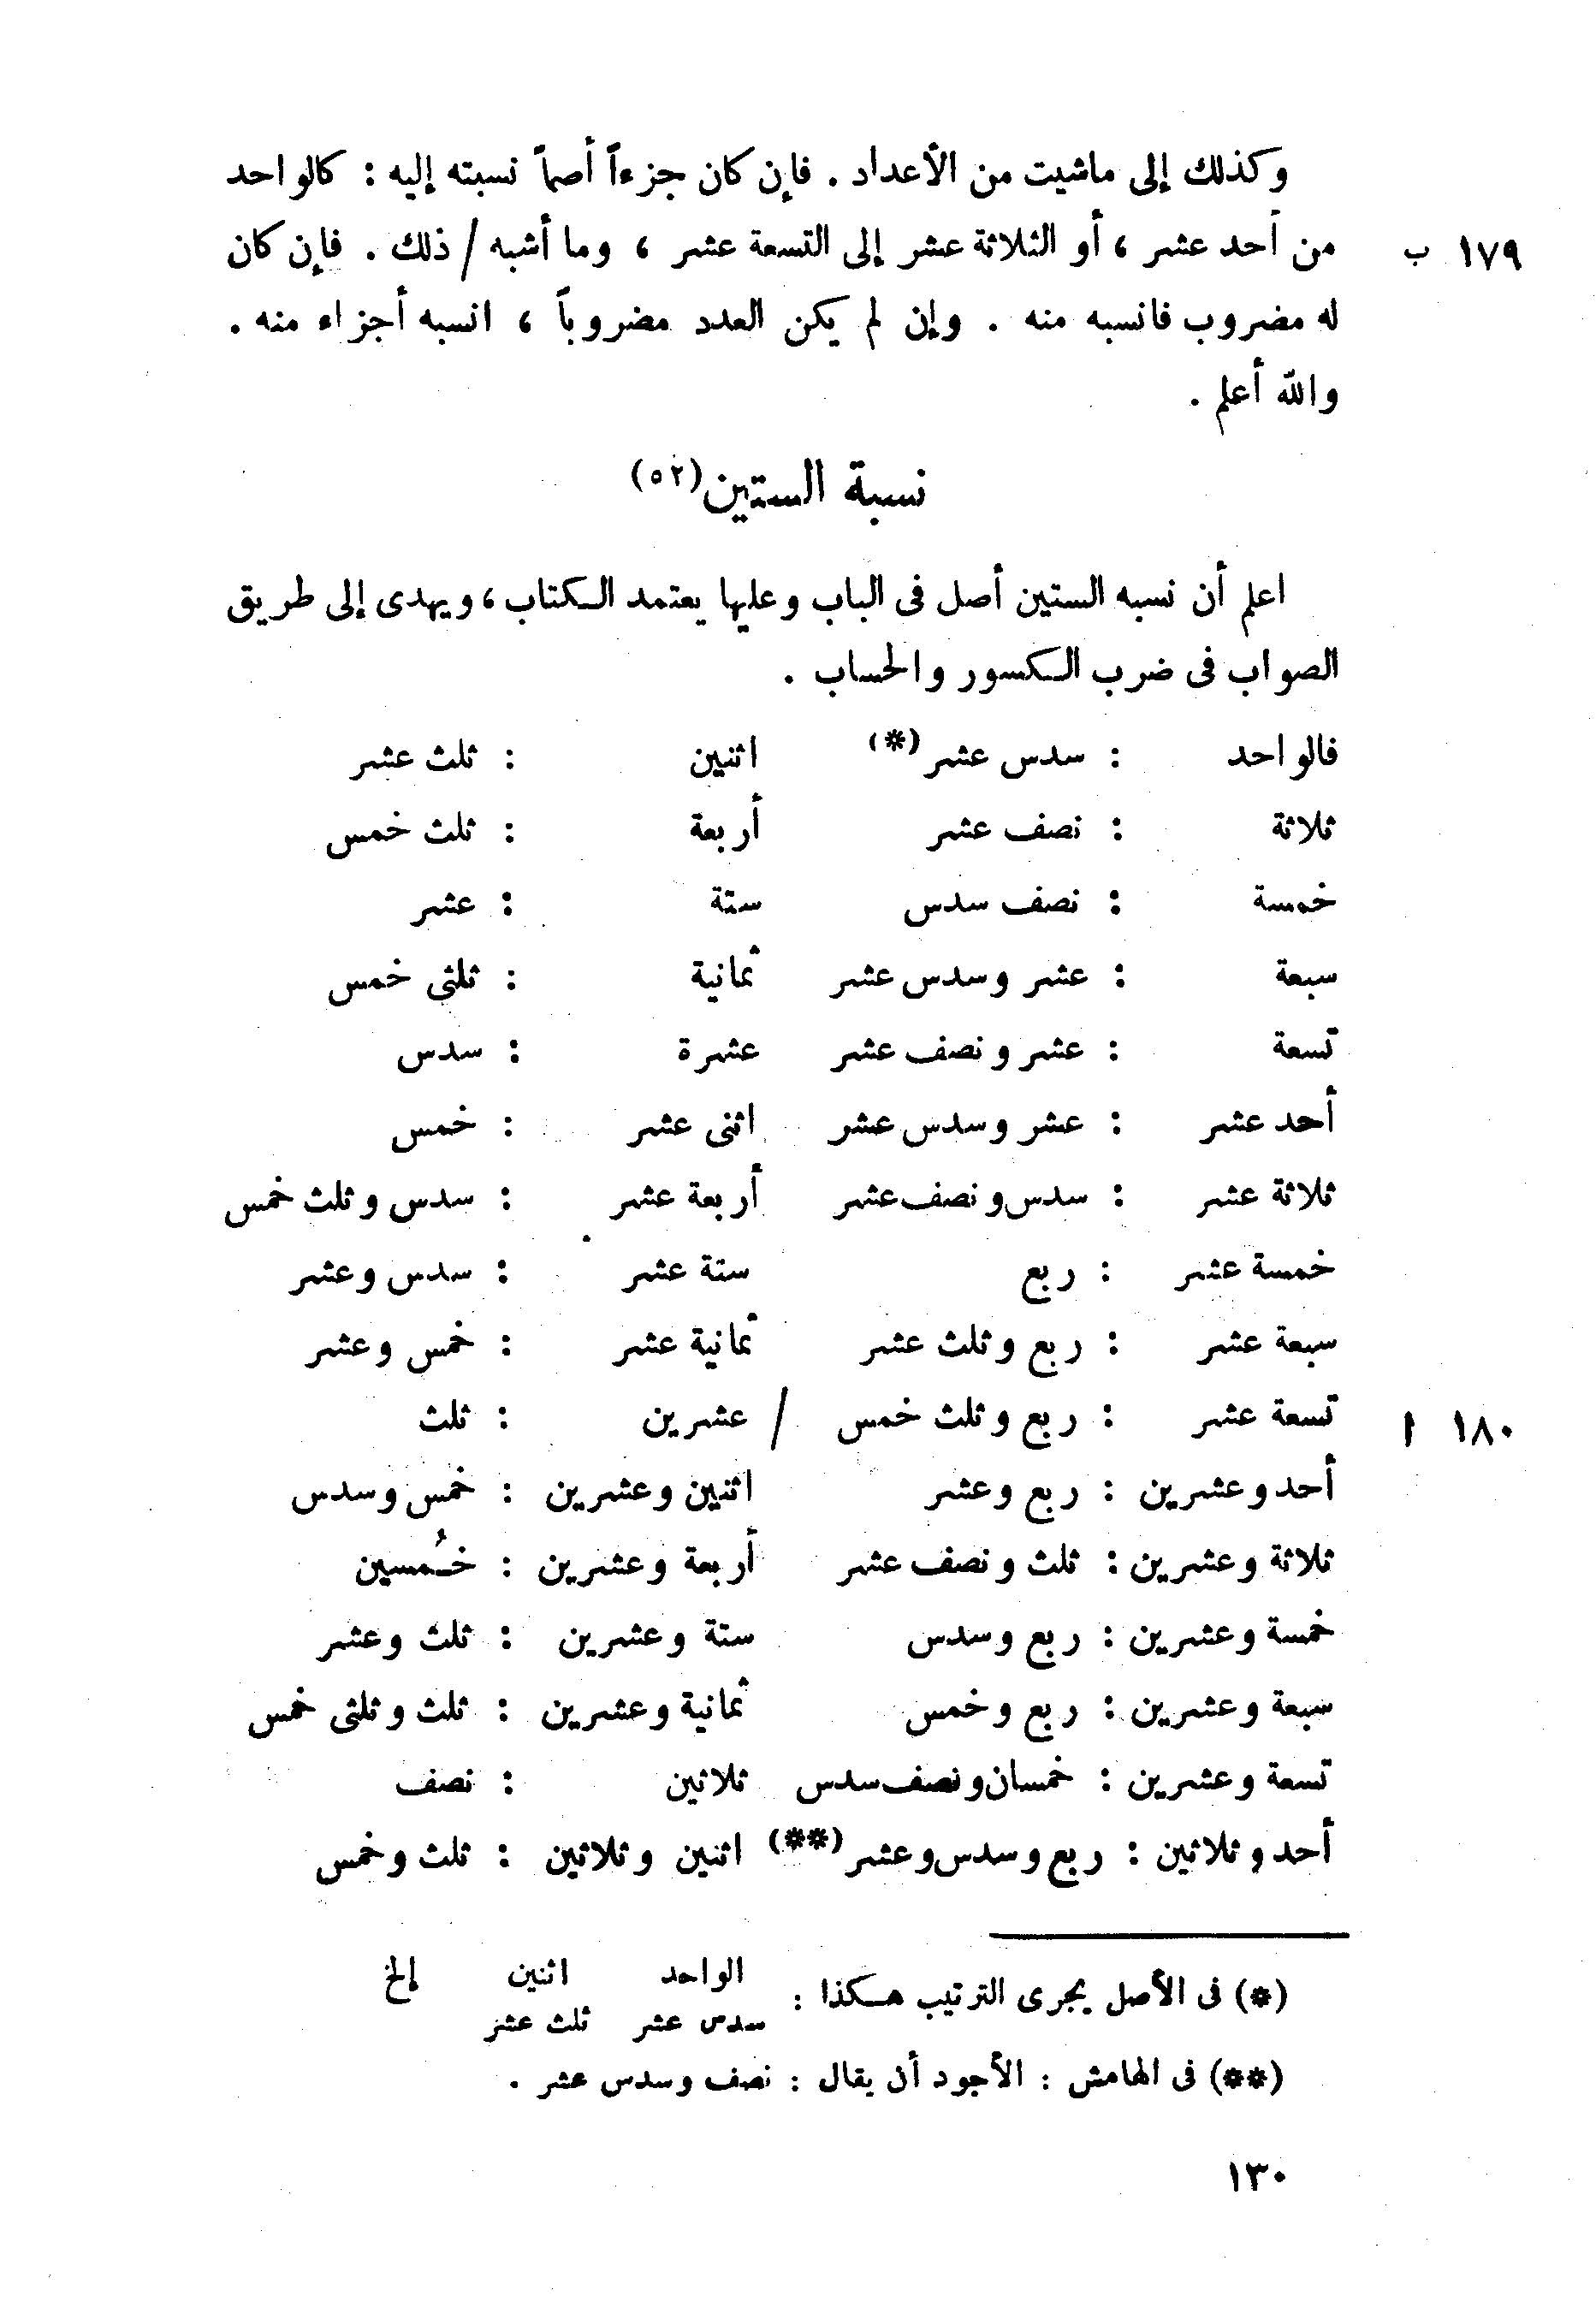 وكذلك إلى ماشيت من الأعداد . فإن كان جزءاً أصماً نسبته إليه : كالواحد
١٧٩ ب من أحد عشر ، أو الثلاثة عشر إلى التسعة عشر ، وما أشبه / ذلك . فإن كان
له مضروب فانسبه منه . وإن لم يكن العدد مضروباً ، انسبه أجزاء منه .
والله أعلم .
نسبة الستين(٥٢)
اعلم أن نسبه الستين أصل فى الباب وعليها يعتمد الكتاب ، ويهدى إلى طريق
الصواب فى ضرب الكسور والحساب .
فالواحد : سدس عشر(*) اثنين : ثلث عشر
ثلاثة : نصف عشر أربعة : ثلث خمس
خمسة : نصف سدس ستة : عشر
سبعة : عشر وسدس عشر ثمانية : ثلثى خمس
تسعة : عشر ونصف عشر عشرة : سدس
أحد عشر : عشر وسدس عشر اثنى عشر : خمس
ثلاثة عشر : سدس ونصف عشر أربعة عشر : سدس وثلث خمس
خمسة عشر : ربع ستة عشر : سدس وعشر
سبعة عشر : ربع وثلث عشر ثمانية عشر : خمس وعشر
١٨٠ ا تسعة عشر : ربع وثلث خمس / عشرين : ثلث
أحد وعشرين : ربع وعشر اثنين وعشرين : خمس وسدس
ثلاثة وعشرين : ثلث ونصف عشر أربعة وعشرين : خُمسين
خمسة وعشرين : ربع وسدس ستة وعشرين : ثلث وعشر
سبعة وعشرين : ربع وخمس ثمانية وعشرين : ثلث وثلثى خمس
تسعة وعشرين : خمسان ونصف سدس ثلاثين : نصف
أحد وثلاثين : ربع وسدس وعشر(**) اثنين وثلاثين : ثلث وخمس
(*) فى الأصل يجرى الترتيب هكذا : الواحد اثنين إلخ
سدس عشر ثلث عشر
(**) فى الهامش : الأجود أن يقال : نصف وسدس عشر .
١٣٠